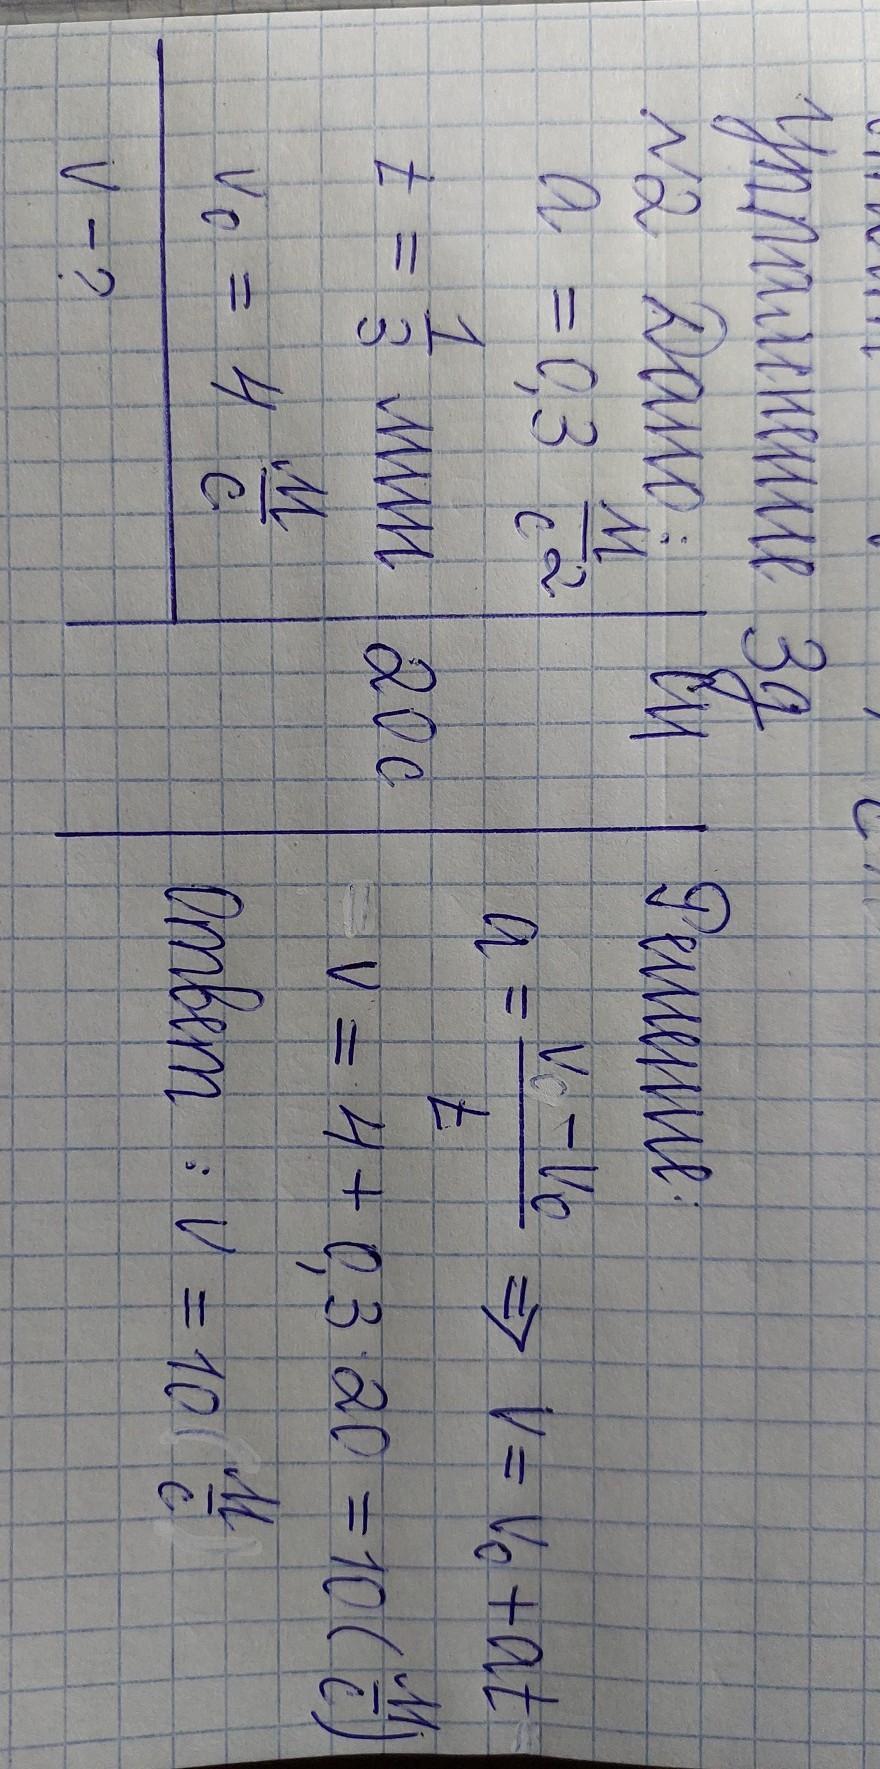 Упражнение 39
№2 Дано:
a = 0,3 м/с2
t = 1/3 мин
v0 = 4 м/с
v - ?
СИ
20 с
Решение:
a = v - v0 / t ⇒ v = v0 + at
v = 4 + 0,3 · 20 = 10 (м/с)
Ответ: v = 10 м/с